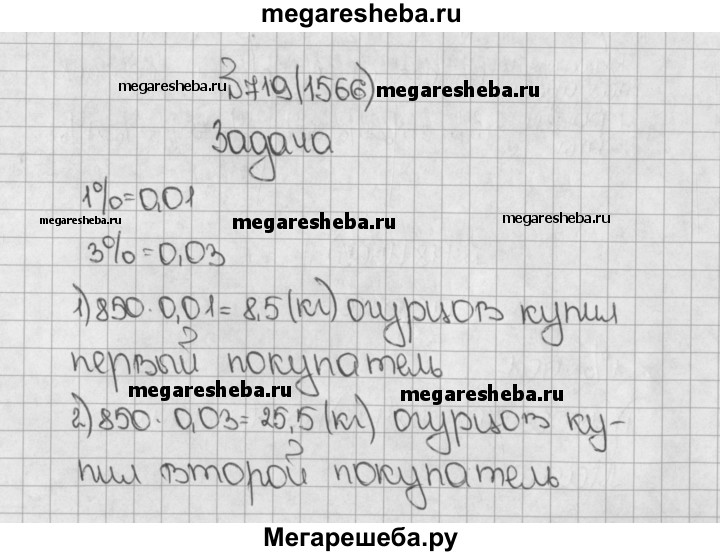 megaresheba.ru
megaresheba.ru 719(1566) megaresheba.ru
Задача
1%=0,01
megaresheba.ru megaresheba.ru megaresheba.ru
3%=0,03
1) 850·0,01=8,5 (кг) огурцов купил
первый покупатель
megaresheba.ru megaresheba.ru
2) 850·0,03=25,5 (кг) огурцов ку-
пил второй покупатель
Мегарешеба.ру